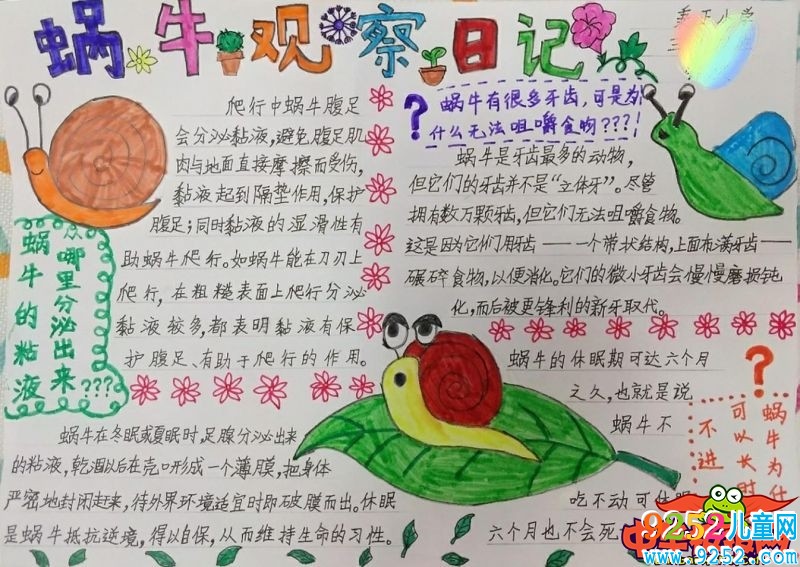 蜗牛观察日记
爬行中蜗牛腹足
会分泌黏液,避免腹足肌
肉与地面直接摩擦而受伤,
黏液起到隔垫作用,保护
腹足;同时黏液的湿滑性有
助蜗牛爬行。如蜗牛能在刀刃上
爬行,在粗糙表面上爬行分泌
黏液较多,都表明黏液有保
护腹足、有助于爬行的作用。
蜗牛的粘液
从哪里分泌出来???
蜗牛在冬眠或夏眠时,足腺分泌出来
的粘液,乾涸以后在壳口形成一个薄膜,把身体
严密地封闭起来,待外界环境适宜时即破膜而出。休眠
是蜗牛抵抗逆境,得以自保,从而维持生命的习性。
? 蜗牛有很多牙齿,可是为
什么无法咀嚼食物???!
蜗牛是牙齿最多的动物,
但它们的牙齿并不是“立体牙”。尽管
拥有数万颗牙齿,但它们无法咀嚼食物。
这是因为它们用齿——一个带状结构,上面布满牙齿——
碾碎食物,以便消化。它们的微小牙齿会慢慢磨损钝
化,而后被更锋利的新牙取代。
?
蜗牛为什
可以长时
不进
蜗牛的休眠期可达六个月
之久,也就是说
蜗牛不
吃不动可休眠
六个月也不会死
9252儿童网
www.9252.com